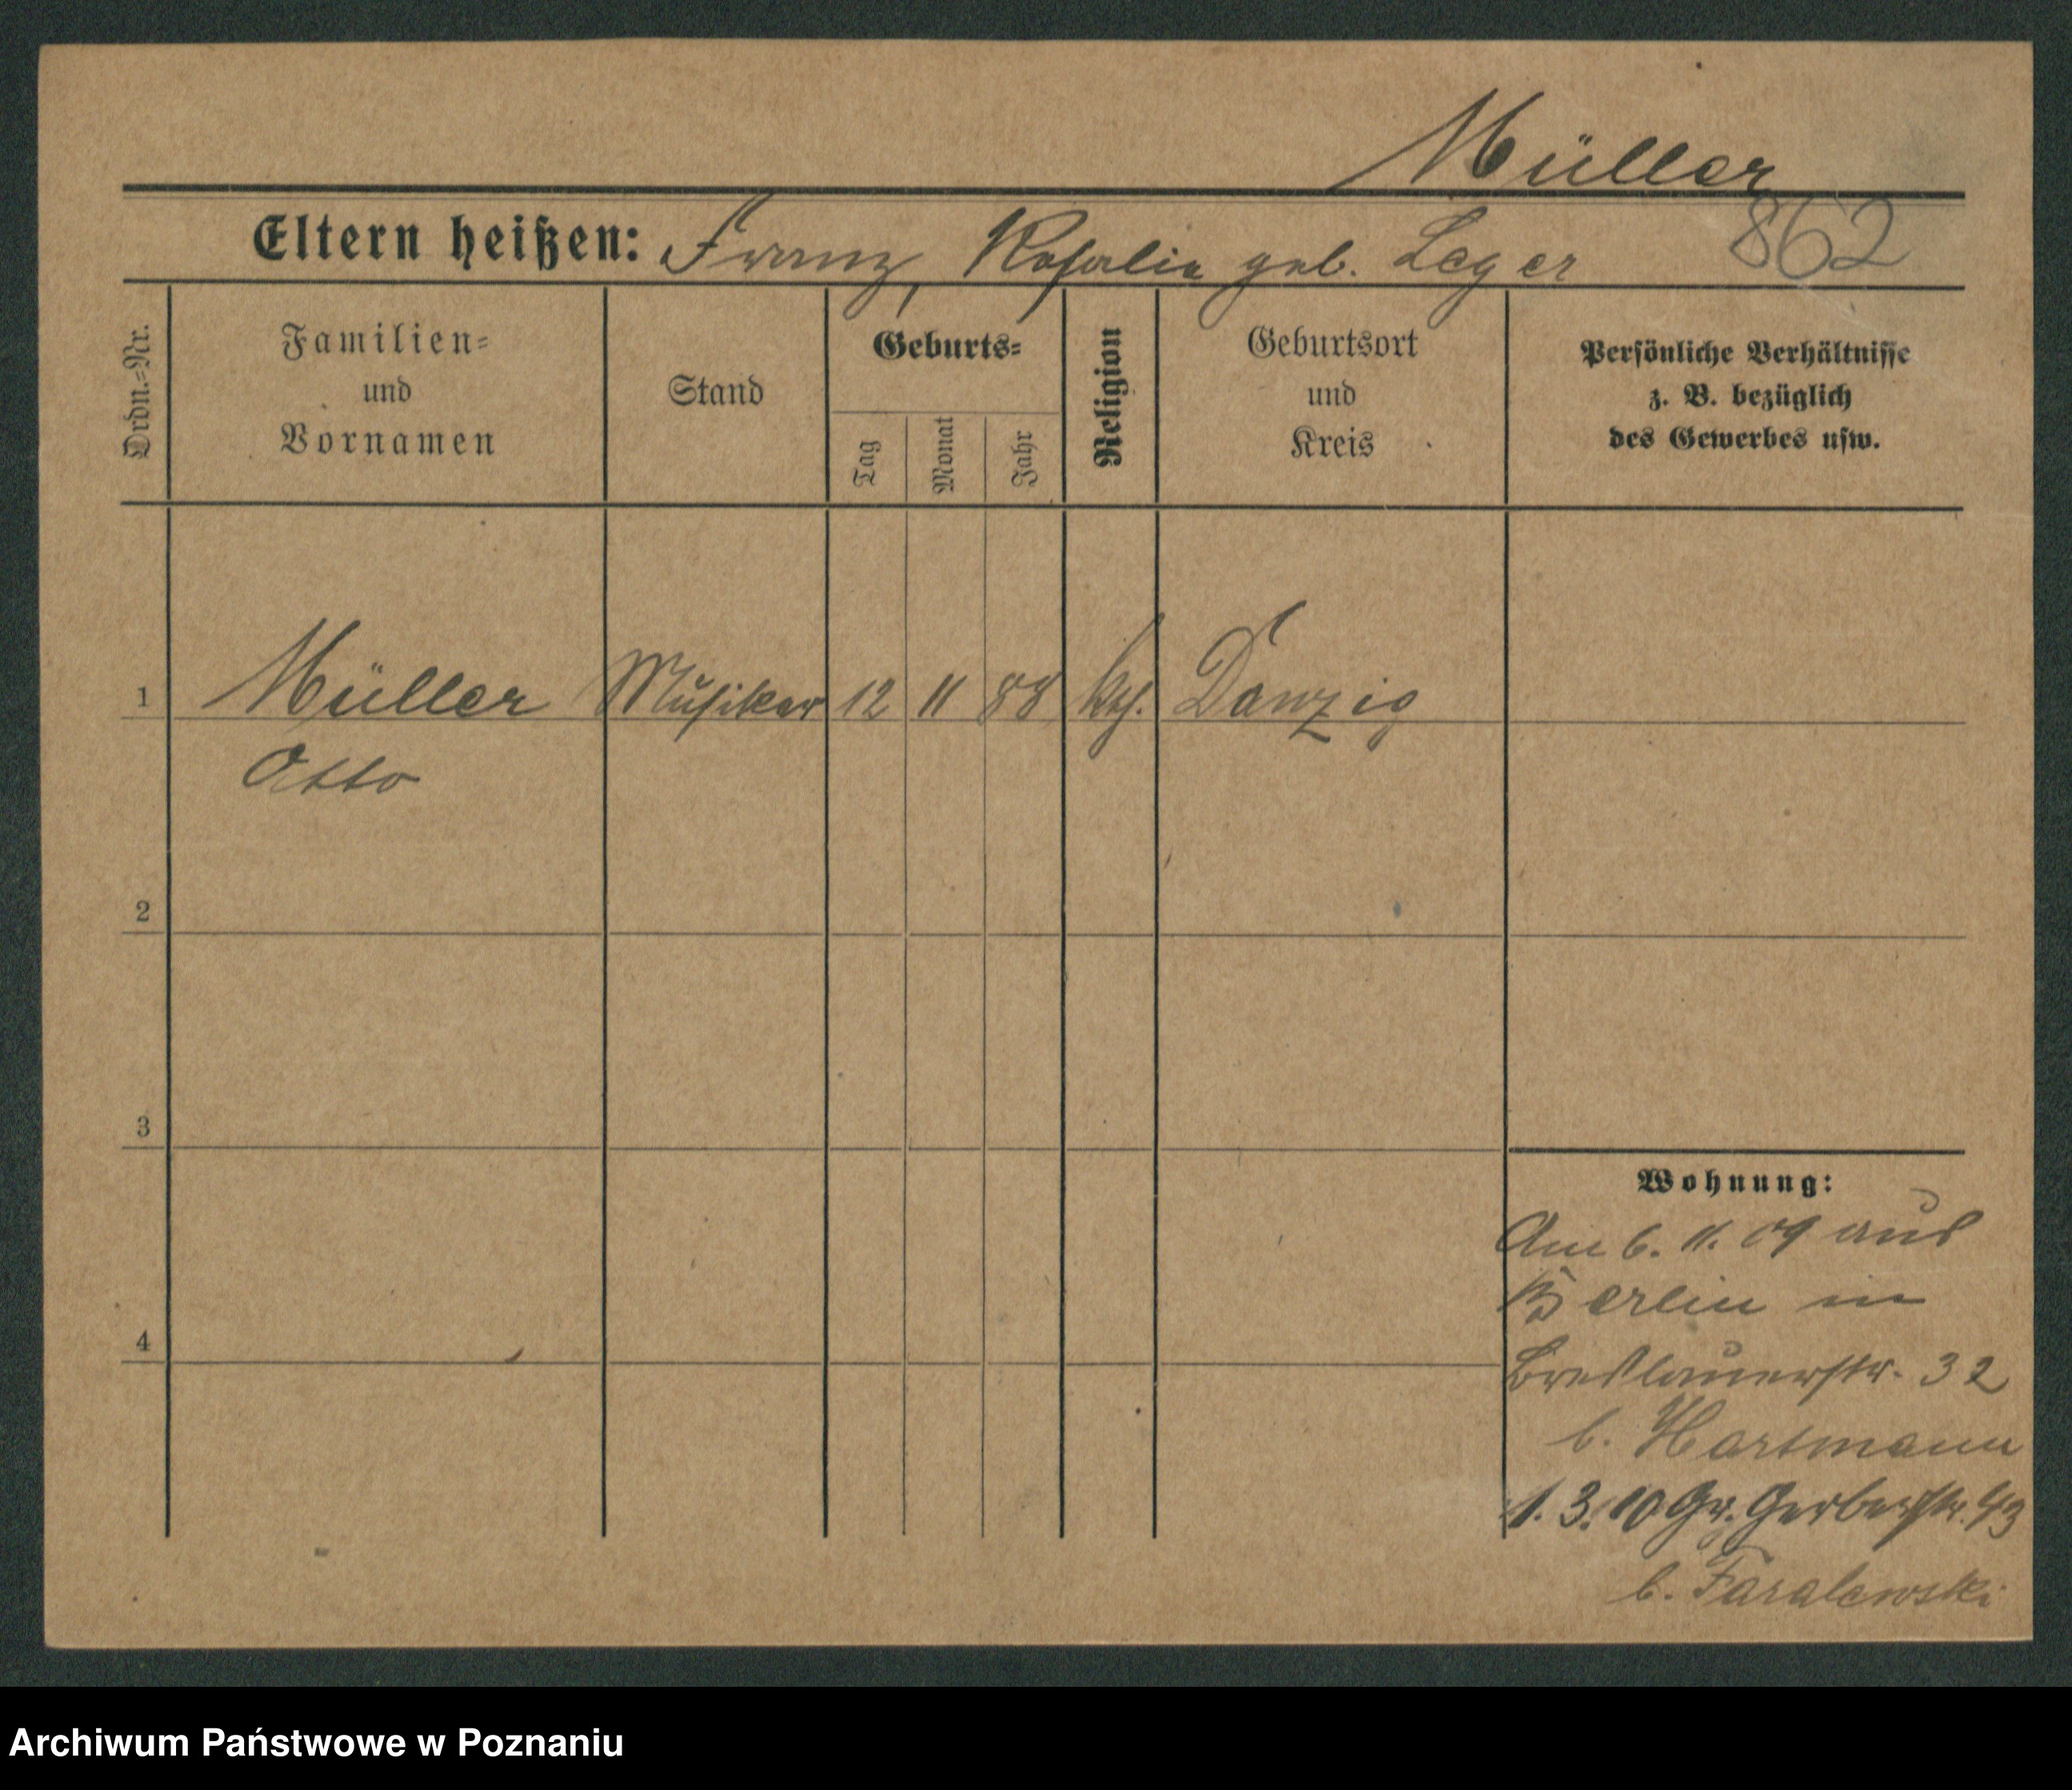 Müller
Eltern heißen: Franz, Rosalie geb. Leger
862
Ordn.=Nr.
Familien=
und
Vornamen
Stand
Geburts=
Tag
Monat
Jahr
Religion
Geburtsort
und
Kreis
Persönliche Verhältnisse
z. B. bezüglich
des Gewerbes usw.
1 Müller Musiker 12 11 88 kth. Danzig
Otto
2
3
4
Wohnung:
Am 6. 11. 09 aus
Berlin in
Breslauerstr. 32
b. Hartmann
1. 3. 10 Gr. Gerberstr. 43
b.
Archiwum Państwowe w Poznaniu